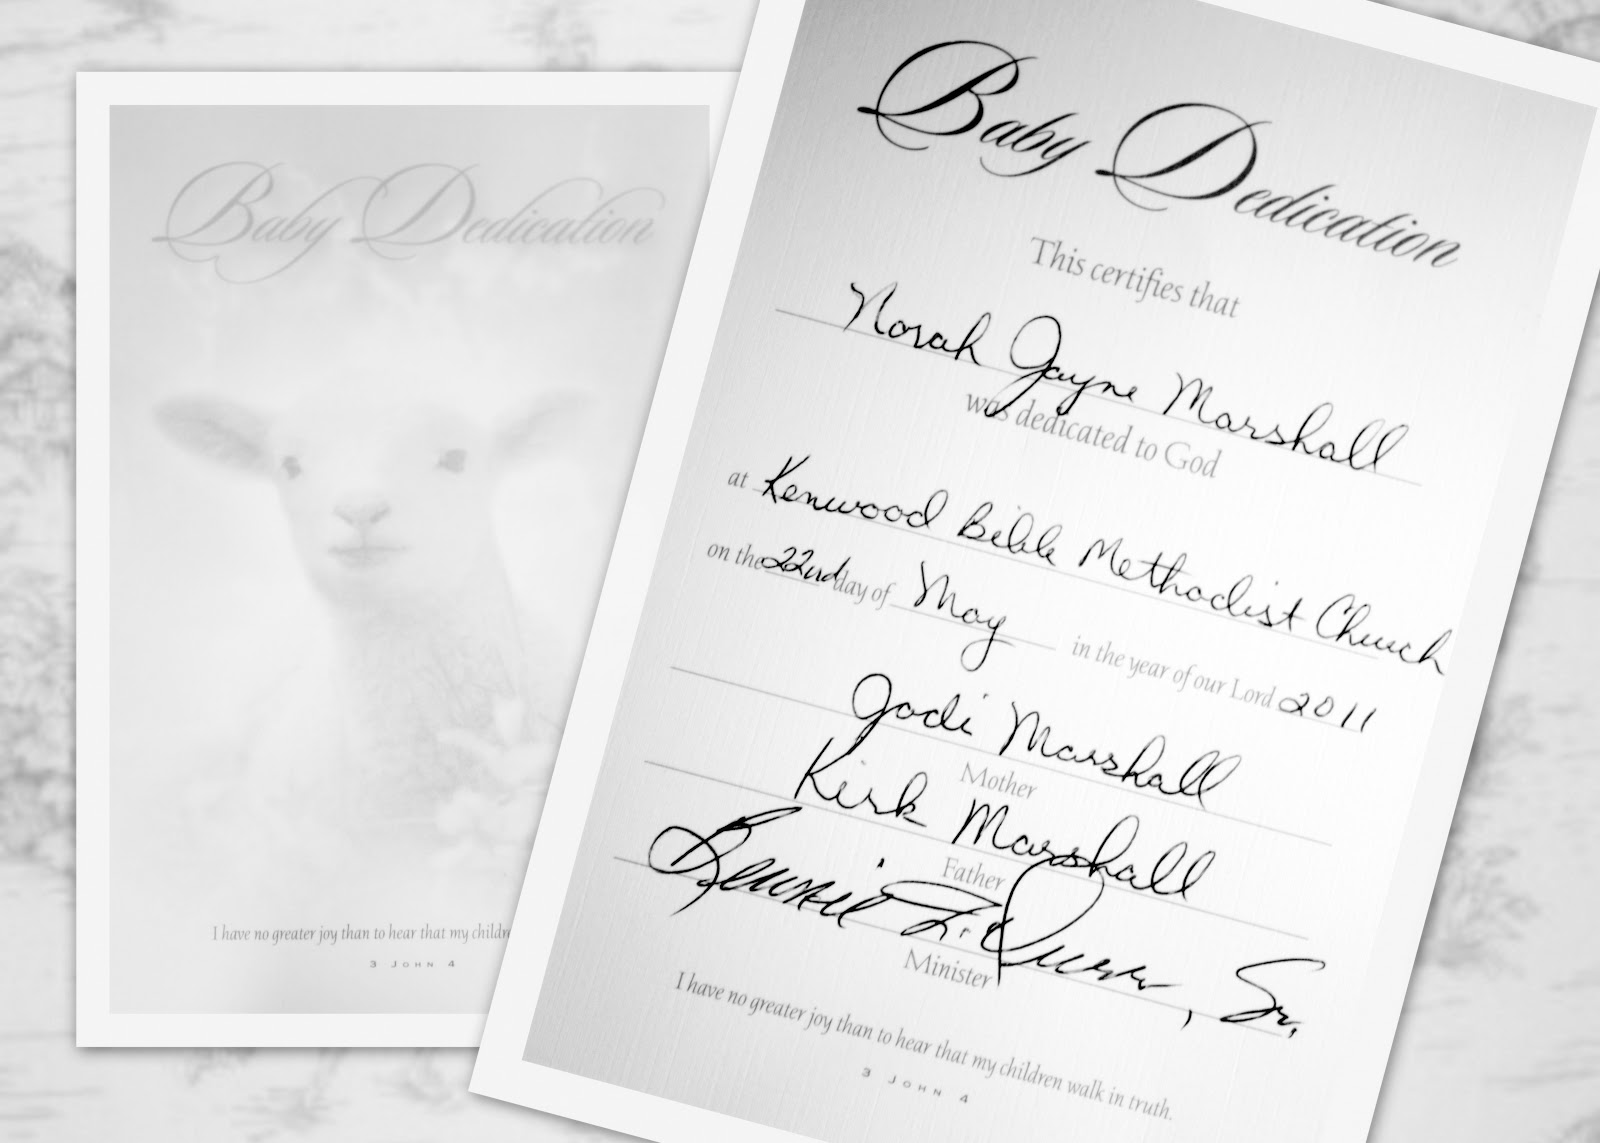 Baby Dedication
I have no greater joy than to hear that my childre
3 John 4
Baby Dedication
This certifies that
Norah Jayne Marshall
was dedicated to God
at Kenwood Bible Methodist Church
on the 22nd day of May in the year of our Lord 2011
Jodi Marshall
Mother
Kirk Marshall
Father
Sr.
Minister
I have no greater joy than to hear that my children walk in truth.
3 John 4